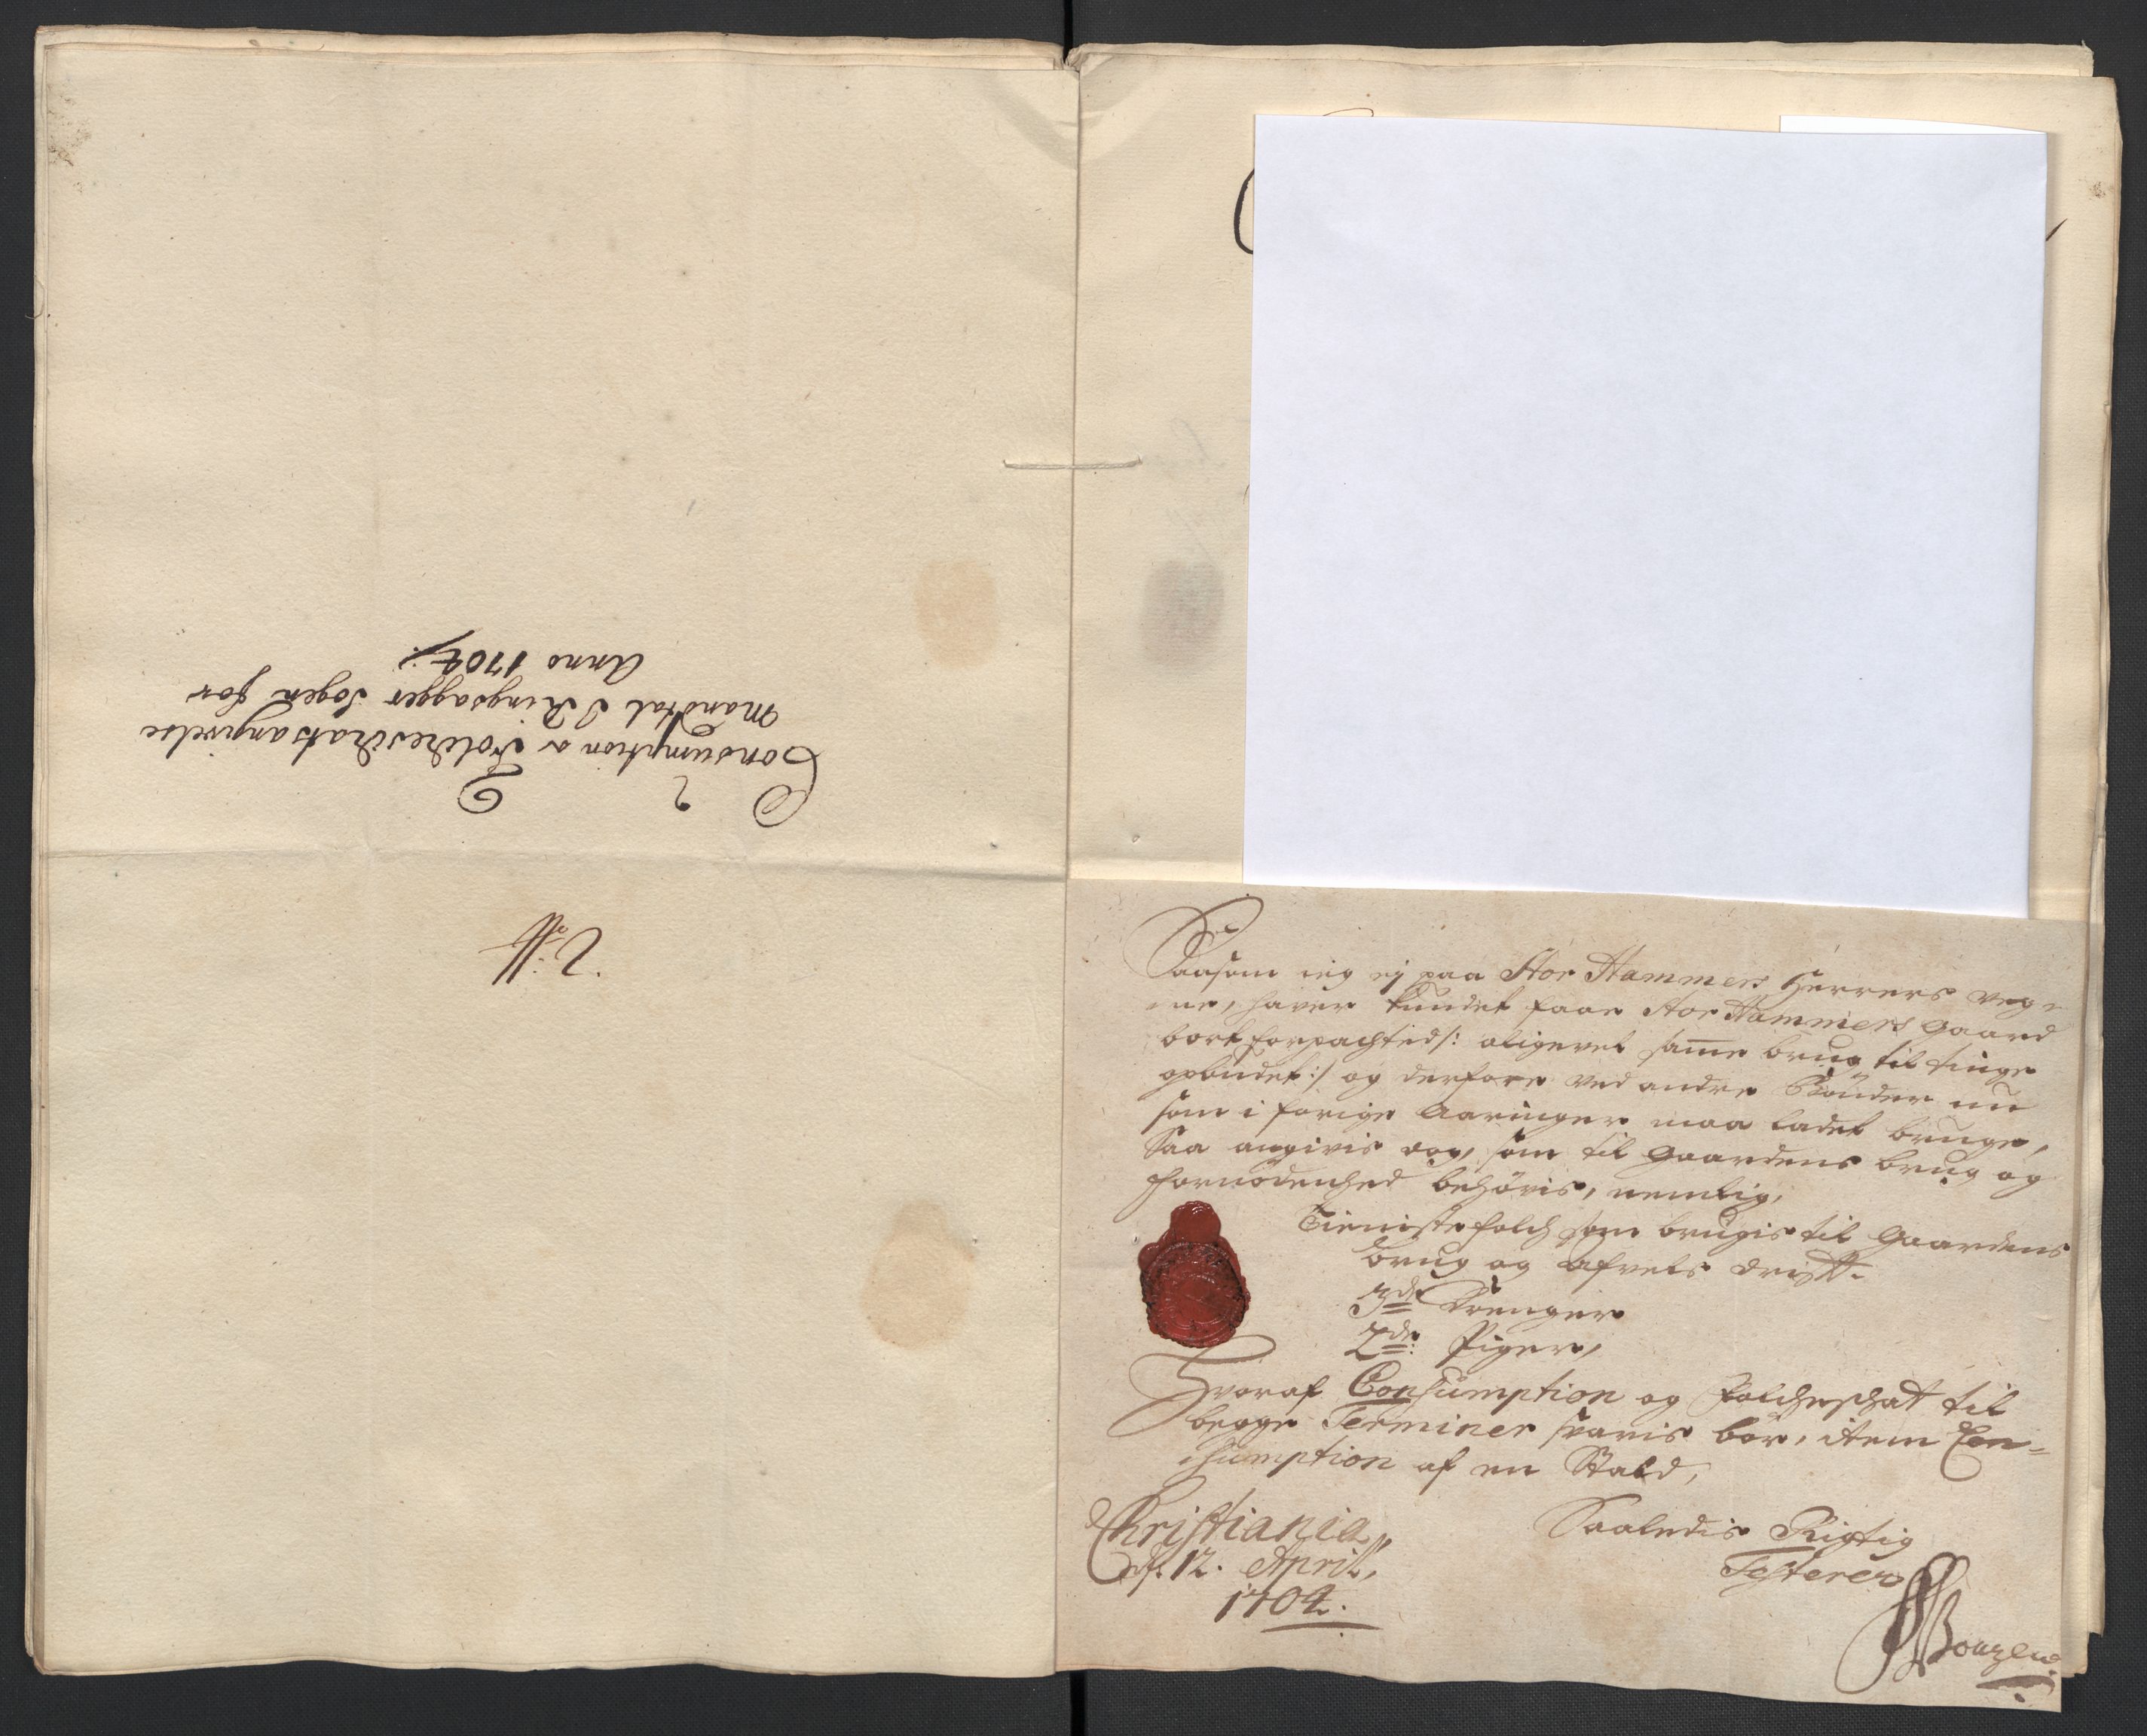 Consumption & Folcheskats angivelse
Mandtal I Ringsagger Sogen for
Anno 1704
Saasom ieg ej paa Stor Hammers Herrers veg-
ne, haver kundet faae Stor Hammers Gaard
bort forpachted /: aligevel same brug til tinge
opbudet :/ og derfore ved andre Bönder nu
som i forige Aaringer maa ladet bruge,
Saa angivis dog, som til Gaardens brug og
fornödenhed behövis, nemlig,
Tienistefolch som brugis til Gaardens
brug og Afvels drift.
3de Drenger
2de: Piger,
Hvoraf Consumption og Folcheschat til
begge Terminer svaris bör, item Con-
sumption af en Stald,
Christiania,
d. 12. April,
1704.
Saaledis Rigtig
Testerer